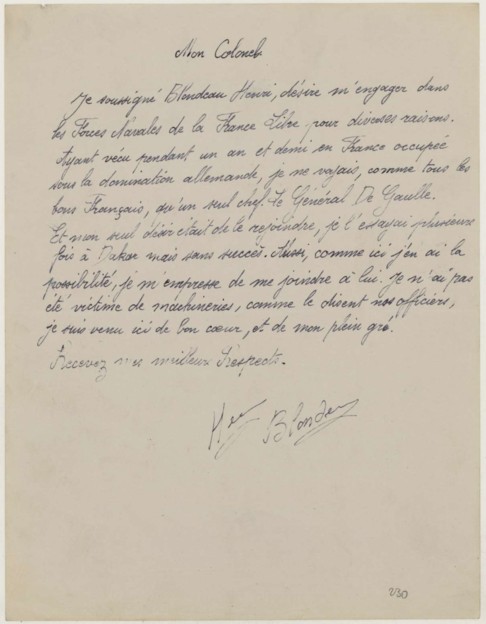 Mon Colonel
Je soussigné Blondeau Henri, désire m'engager dans
les Forces Navales de la France Libre pour diverses raisons.
Ayant vécu pendant un an et demi en France occupée
sous la domination allemande, je ne voyais, comme tous les
bons Français, qu'un seul chef. Le Général De Gaulle.
Et mon seul désir était de le rejoindre, je l'essayai plusieurs
fois à Dakar mais sans succès. Aussi, comme ici j'en ai la
possibilité, je m'empresse de me joindre à lui. Je n'ai pas
été victime de machineries, comme le disent nos officiers,
je suis venu ici de bon cœur, et de mon plein gré.
Recevez mes meilleux respects.
Blondeau
230